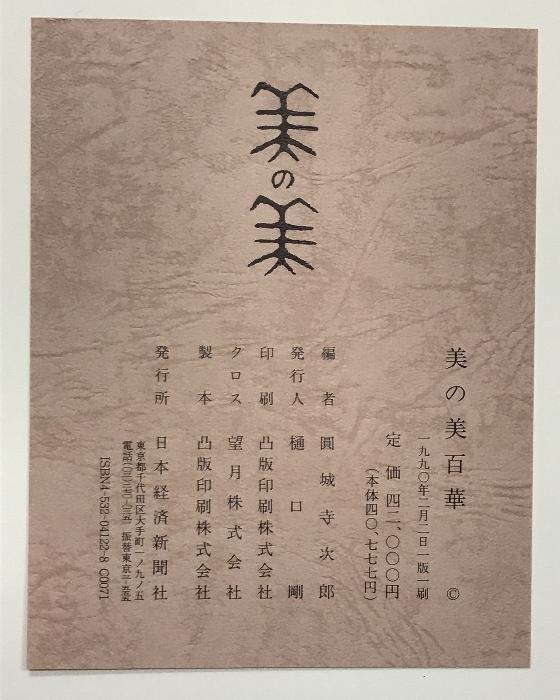 美の美
美の美百華 ©
一九九〇年二月二日一版一刷
定価四二、〇〇〇円
(本体四〇、七七七円)
編者 圓城寺次郎
発行人 樋口剛
印刷 凸版印刷株式会社
クロス 望月株式会社
製本 凸版印刷株式会社
発行所 日本経済新聞社
東京都千代田区大手町一ノ九ノ五
電話(〇三) 振替東京
ISBN4-532-04122-8 C0071